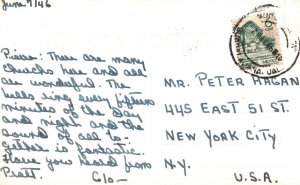 June 7/46
Pierre: There are many
churchs here and all
are wonderful. The
bells ring every fifteen
minutes of the day
and night and the
sound of all to-
gether is fantastic.
Have you heard from
Pratt. C/o—
MR. PETER HAGAN
445 EAST 51 ST.
NEW YORK CITY
N.Y.
U.S.A.